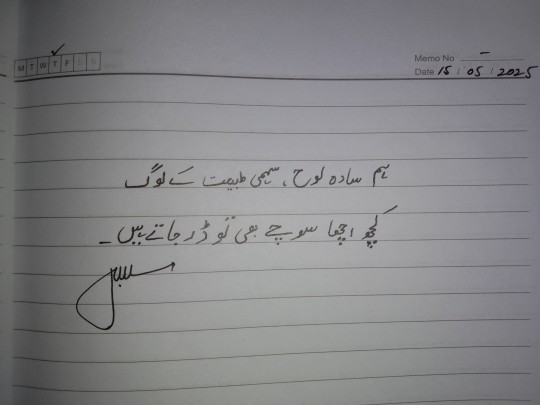 M T W T F S S
Memo No –
Date 15 / 05 / 2025
ہم سادہ لوح، سہمی طبیعت کے لوگ
کچھ اچھا سوچے بھی تو ڈر جاتے ہیں۔